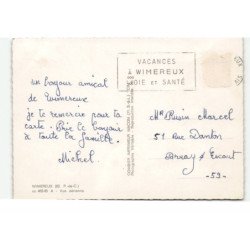 VACANCES
à WIMEREUX
JOIE et SANTÉ
un bonjour amical
de Wimereux
je te remercie pour ta
carte. Bise le bonjour
de toute la famille.
Michel.
Mr Pusin Marcel
51 Rue Danton
Escaut
-59-
WIMEREUX (62. P.-de-C.)
Vue aérienne